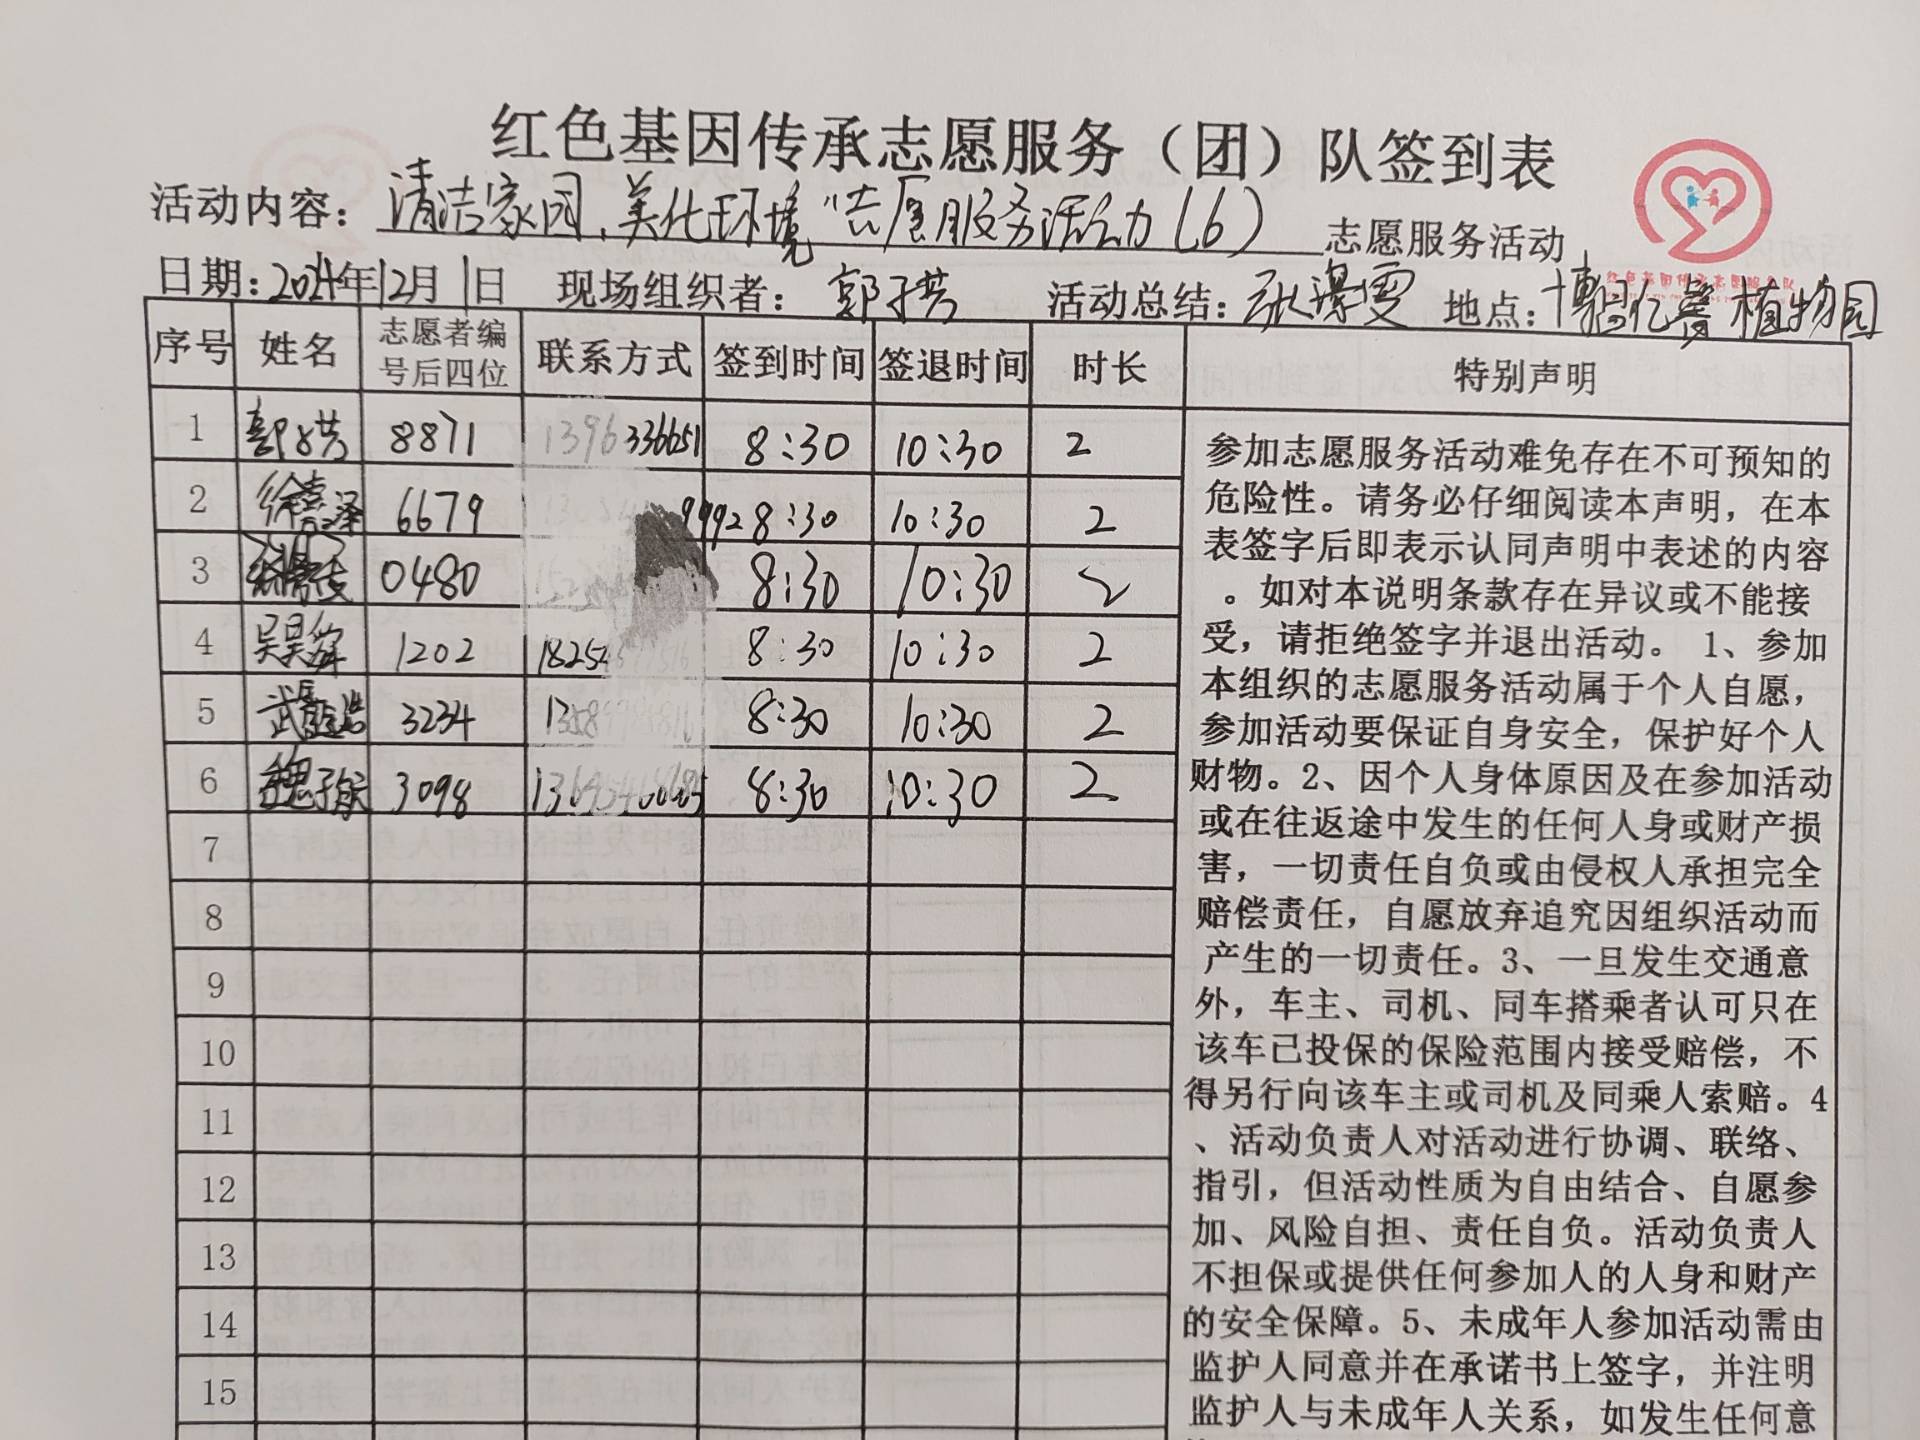 红色基因传承志愿服务（团）队签到表
活动内容：清洁家园、美化环境 志愿服务活动（6）志愿服务活动
红色基因传承志愿服务队
日期：2024年12月1日 现场组织者：郭子琪 活动总结： 地点：博亿赛植物园
序号 姓名 志愿者编号后四位 联系方式 签到时间 签退时间 时长 特别声明
1 8871 8:30 10:30 2
2 6679 8:30 10:30 2
3 0480 8:30 10:30 2
4 吴昊 1202 8:30 10:30 2
5 武 3234 8:30 10:30 2
6 魏子 3098 8:30 10:30 2
7
8
9
10
11
12
13
14
15
参加志愿服务活动难免存在不可预知的
危险性。请务必仔细阅读本声明，在本
表签字后即表示认同声明中表述的内容
。如对本说明条款存在异议或不能接
受，请拒绝签字并退出活动。 1、参加
本组织的志愿服务活动属于个人自愿，
参加活动要保证自身安全，保护好个人
财物。2、因个人身体原因及在参加活动
或在往返途中发生的任何人身或财产损
害，一切责任自负或由侵权人承担完全
赔偿责任，自愿放弃追究因组织活动而
产生的一切责任。3、一旦发生交通意
外，车主、司机、同车搭乘者认可只在
该车已投保的保险范围内接受赔偿，不
得另行向该车主或司机及同乘人索赔。4
、活动负责人对活动进行协调、联络、
指引，但活动性质为自由结合、自愿参
加、风险自担、责任自负。活动负责人
不担保或提供任何参加人的人身和财产
的安全保障。5、未成年人参加活动需由
监护人同意并在承诺书上签字，并注明
监护人与未成年人关系，如发生任何意